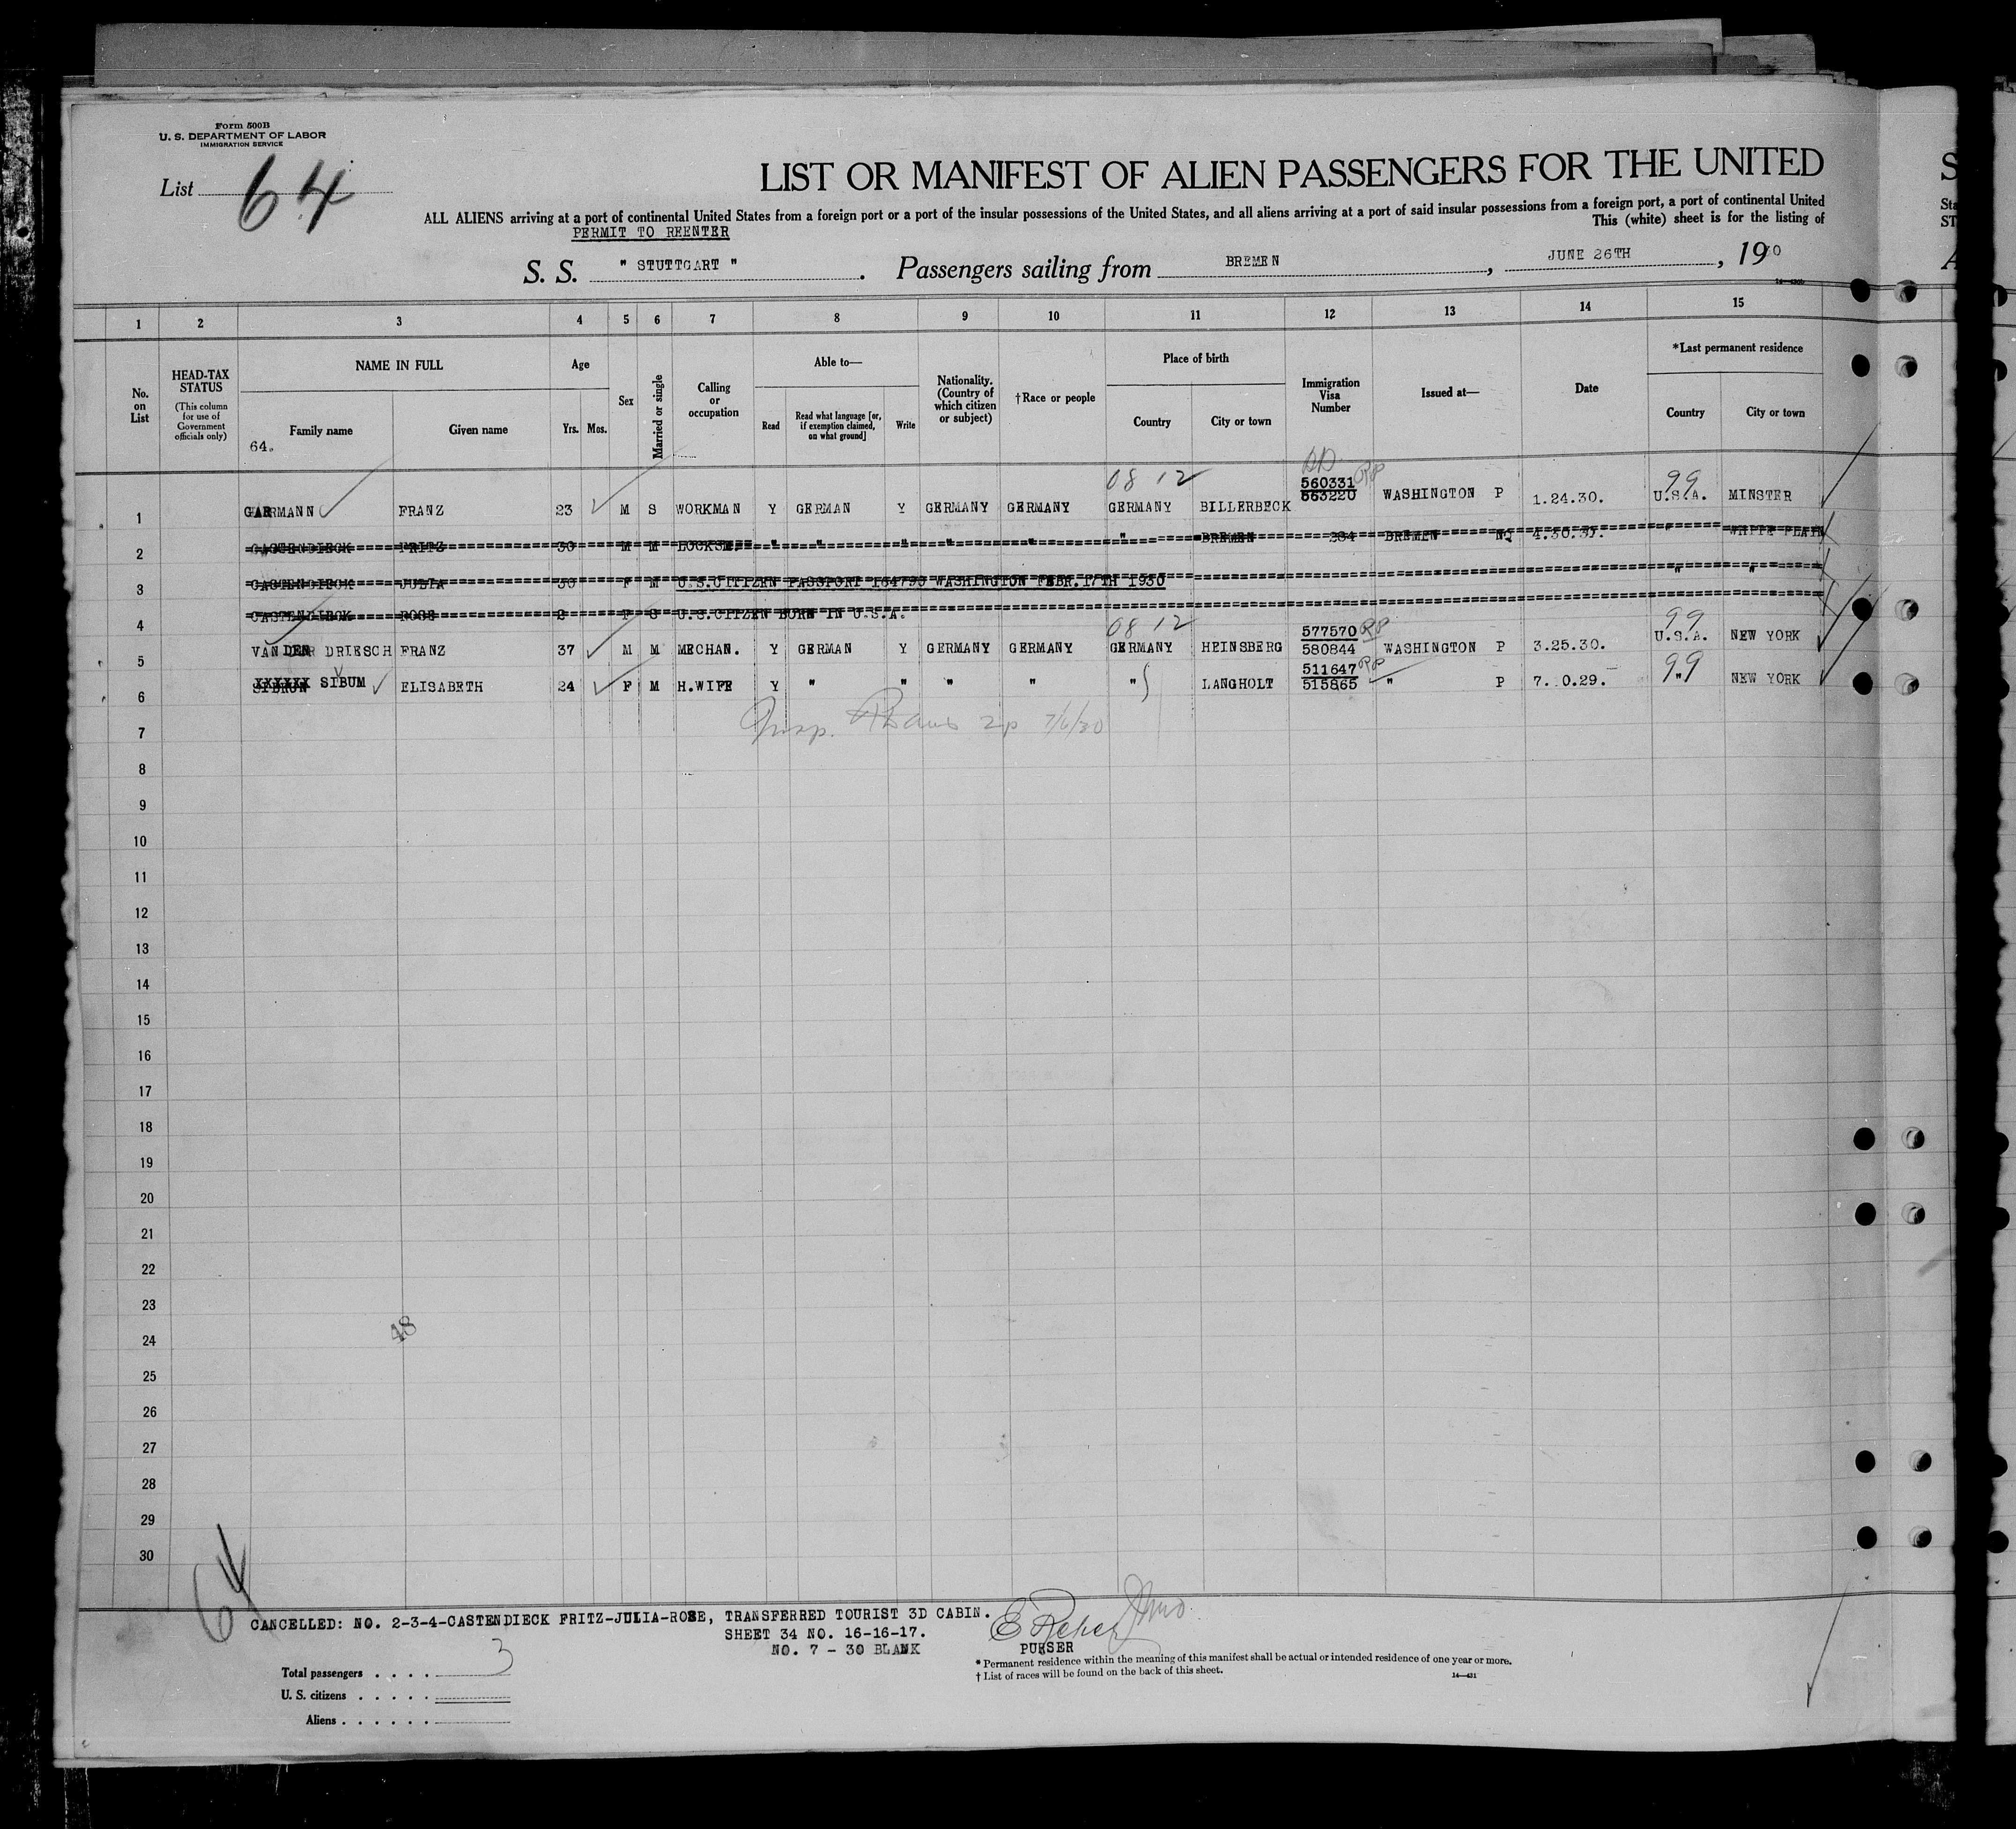 Form 500B
U. S. DEPARTMENT OF LABOR
IMMIGRATION SERVICE
List 64
LIST OR MANIFEST OF ALIEN PASSENGERS FOR THE UNITED
ALL ALIENS arriving at a port of continental United States from a foreign port or a port of the insular possessions of the United States, and all aliens arriving at a port of said insular possessions from a foreign port, a port of continental United
This (white) sheet is for the listing of
PERMIT TO REENTER
S. S. " STUTTGART ". Passengers sailing from BREMEN, JUNE 26TH, 1930
1 2 3 4 5 6 7 8 9 10 11 12 13 14 15
No. on List
HEAD-TAX STATUS (This column for use of Government officials only)
NAME IN FULL
Family name
Given name
64.
Age
Yrs. Mos.
Sex
Married or single
Calling or occupation
Able to—
Read
Read what language [or, if exemption claimed, on what ground]
Write
Nationality. (Country of which citizen or subject)
†Race or people
Place of birth
Country
City or town
Immigration Visa Number
Issued at—
Date
*Last permanent residence
Country
City or town
08 12 560331 99
1 GARMANN FRANZ 23 M S WORKMAN Y GERMAN Y GERMANY GERMANY GERMANY BILLERBECK 553220 WASHINGTON P 1.24.30. U.S.A. MINSTER
2 CASTENDIECK FRITZ 30 M M LOCKSM. " " " " " " BREMEN 284 BREMEN NQ 4.30.31. " WHITE PLAIN
3 CASTENDIECK JULIA 30 F M U.S.CITIZEN PASSPORT 164799 WASHINGTON FEBR.17TH 1930 " "
4 CASTENDIECK ROSE 2 F S U.S.CITZEN BORN IN U.S.A.
08 12 577570 RP 99
5 VAN DEN DRIESCH FRANZ 37 M M MECHAN. Y GERMAN Y GERMANY GERMANY GERMANY HEINSBERG 580844 WASHINGTON P 3.25.30. U.S.A. NEW YORK
511647 RP 99
6 SIBUM ELISABETH 24 F M H.WIFE Y " " " " " LANGHOLT 515865 " P 7. 0.29. " NEW YORK
7 Insp. 2p 7/6/30
8
9
10
11
12
13
14
15
16
17
18
19
20
21
22
23
24 48
25
26
27
28
29
30
64
CANCELLED: NO. 2-3-4-CASTENDIECK FRITZ-JULIA-ROSE, TRANSFERRED TOURIST 3D CABIN.
SHEET 34 NO. 16-16-17.
NO. 7 - 30 BLANK
PURSER
Total passengers . . . . 3
U. S. citizens . . . . .
Aliens . . . . . .
* Permanent residence within the meaning of this manifest shall be actual or intended residence of one year or more.
† List of races will be found on the back of this sheet.
14—431